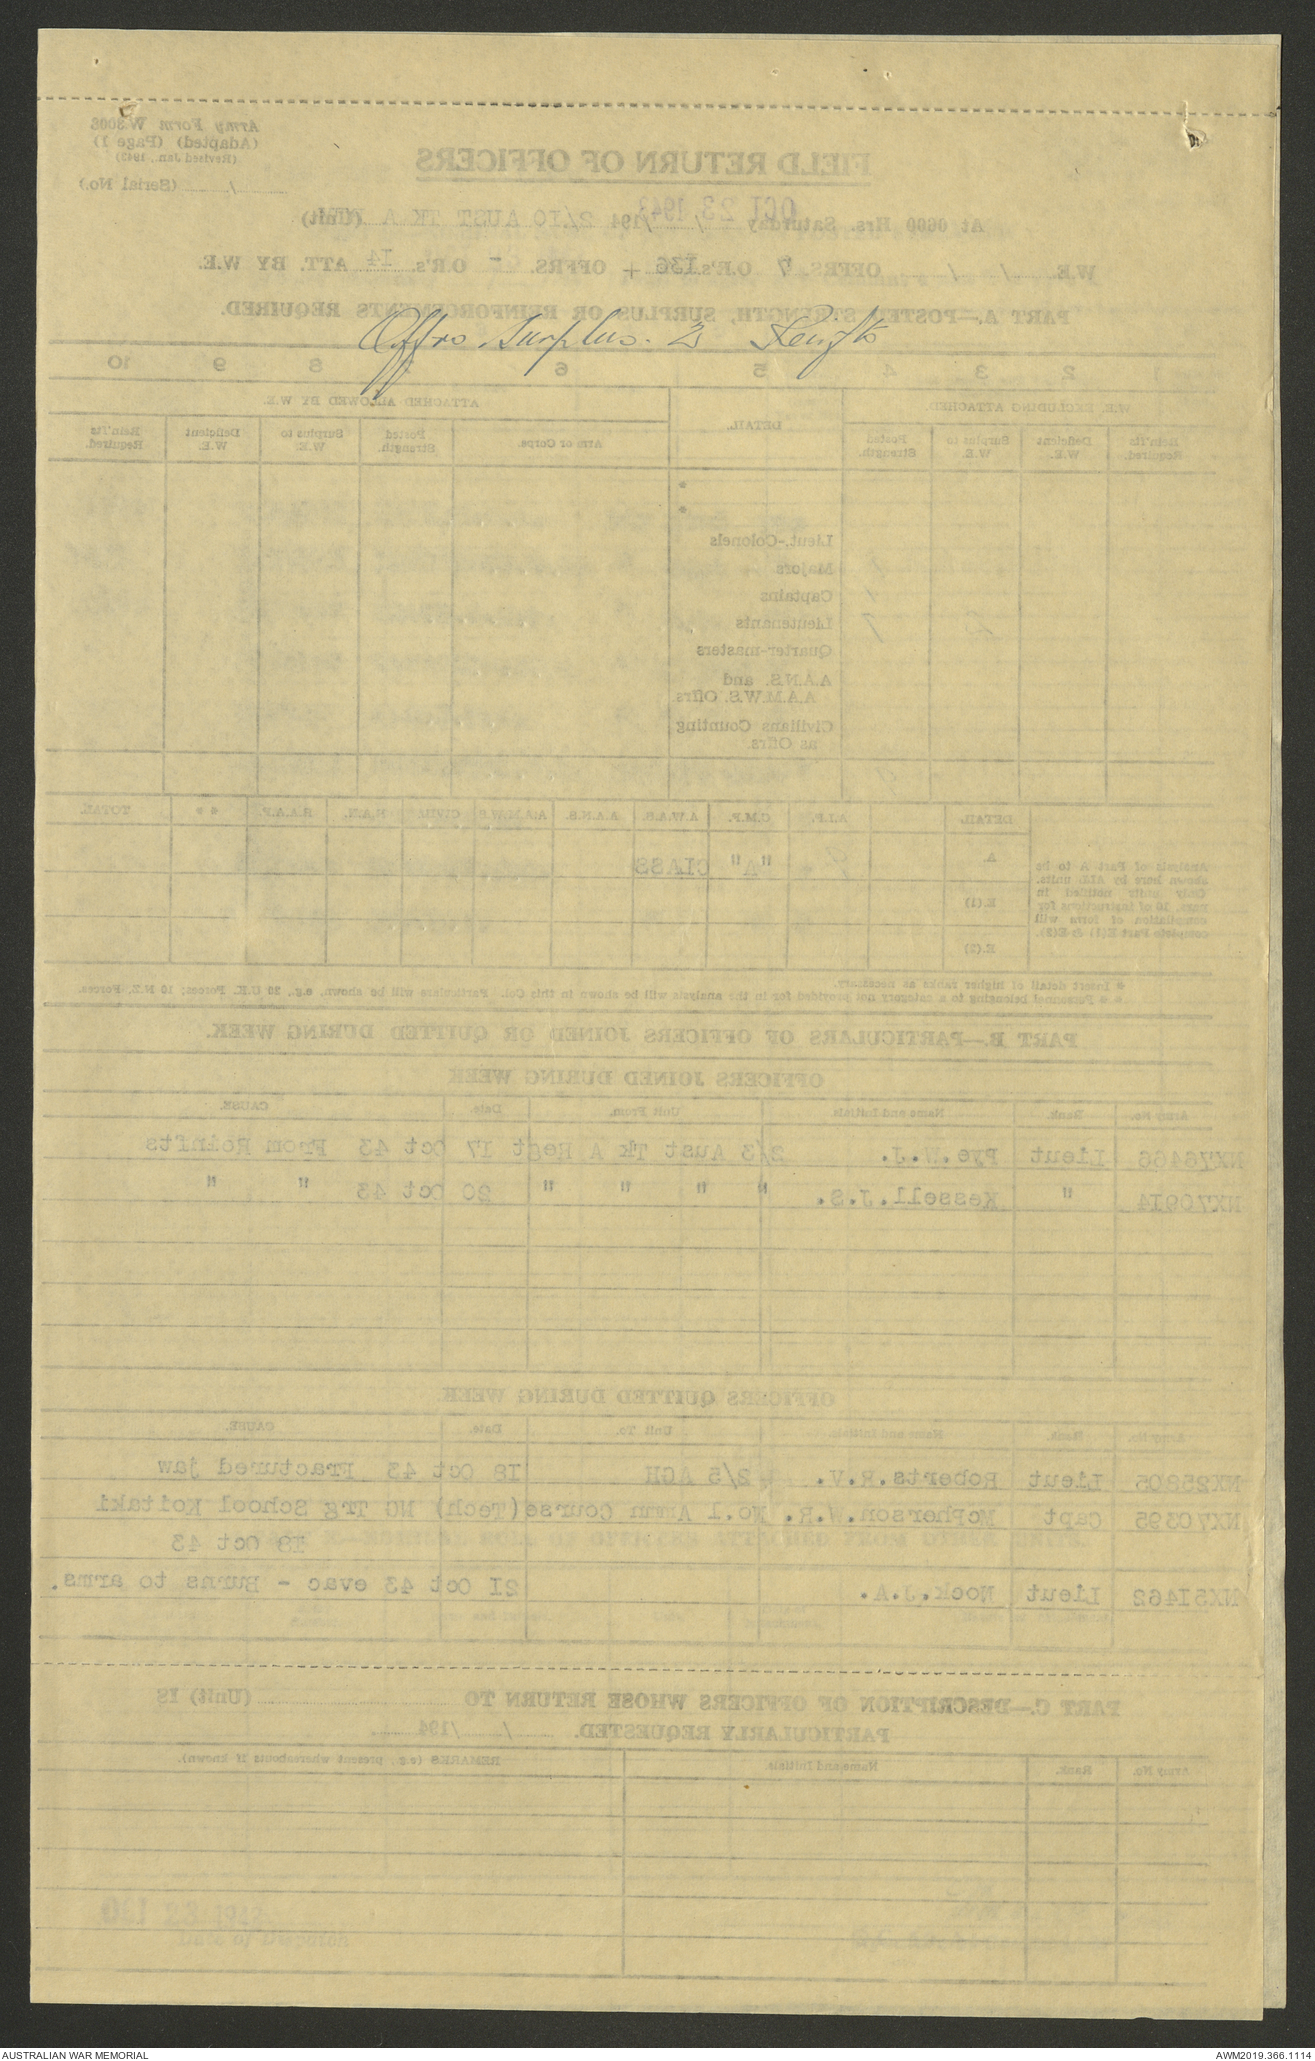 Army Form W.3008
(Adapted) (Page 1)
(Revised Jan., 1943)
FIELD RETURN OF OFFICERS
/ (Serial No.)
At 0600 Hrs. Saturday / /194 OCT 23 1943 2/10 AUST TK A (Unit)
W.E. / / OFFRS. 7 O.R's. 136 + OFFRS. - O.R's. 14 ATT. BY W.E.
PART A.—POSTED STRENGTH, SURPLUS OR REINFORCEMENTS REQUIRED.
Offrs. Surplus. 2 Reinfts
1 2 3 4 5 6 8 9 10
W.E. EXCLUDING ATTACHED. DETAIL. ATTACHED ALLOWED BY W.E.
Rein'fts Required. Deficient W.E. Surplus to W.E. Posted Strength. Arm or Corps. Posted Strength. Surplus to W.E. Deficient W.E. Rein'fts Required.
*
*
Lieut.-Colonels
Majors
Captains 1
Lieutenants 7 2
Quarter-masters
A.A.N.S. and
A.A.M.W.S. Offrs.
Civilians Counting
as Offrs.
9
DETAIL A.I.F. C.M.F. A.W.A.S. A.A.N.S. A.A.M.W.S. CIVIL. R.A.N. R.A.A.F. * * TOTAL.
Analysis of Part A to be
shown here by ALL units.
Only units notified in
para. 10 of instructions for
compilation of form will
complete Part E(1) & E(2).
A. 9 "A" CLASS
E.(1)
E.(2)
* Insert detail of higher ranks as necessary.
* * Personnel belonging to a category not provided for in the analysis will be shown in this Col. Particulars will be shown, e.g., 20 U.K. Forces; 10 N.Z. Forces.
PART B.—PARTICULARS OF OFFICERS JOINED OR QUITTED DURING WEEK.
OFFICERS JOINED DURING WEEK
Army No. Rank. Name and Initials Unit From. Date. CAUSE.
NX76466 Lieut Pye.W.J. 2/3 Aust Tk A Regt 17 Oct 43 From Reinfts
NX70914 " Kessell.J.S. " " " " 20 Oct 43 " "
OFFICERS QUITTED DURING WEEK.
Army No. Rank. Name and Initials. Unit To. Date. CAUSE.
NX25805 Lieut Roberts.R.V. 2/5 AGH 18 Oct 43 Fractured jaw
NX70395 Capt McPherson.W.R. No.1 Ammn Course(Tech) NG Trg School Koitaki
19 Oct 43
NX51462 Lieut Nock.J.A. 21 Oct 43 evac - Burns to arms.
PART C.—DESCRIPTION OF OFFICERS WHOSE RETURN TO (Unit) IS
PARTICULARLY REQUESTED. / /194 .
Army No. Rank. Name and Initials. REMARKS (e.g., present whereabouts if known).
OCT 23 1943
Date of Dispatch
AUSTRALIAN WAR MEMORIAL
AWM2019.366.1114